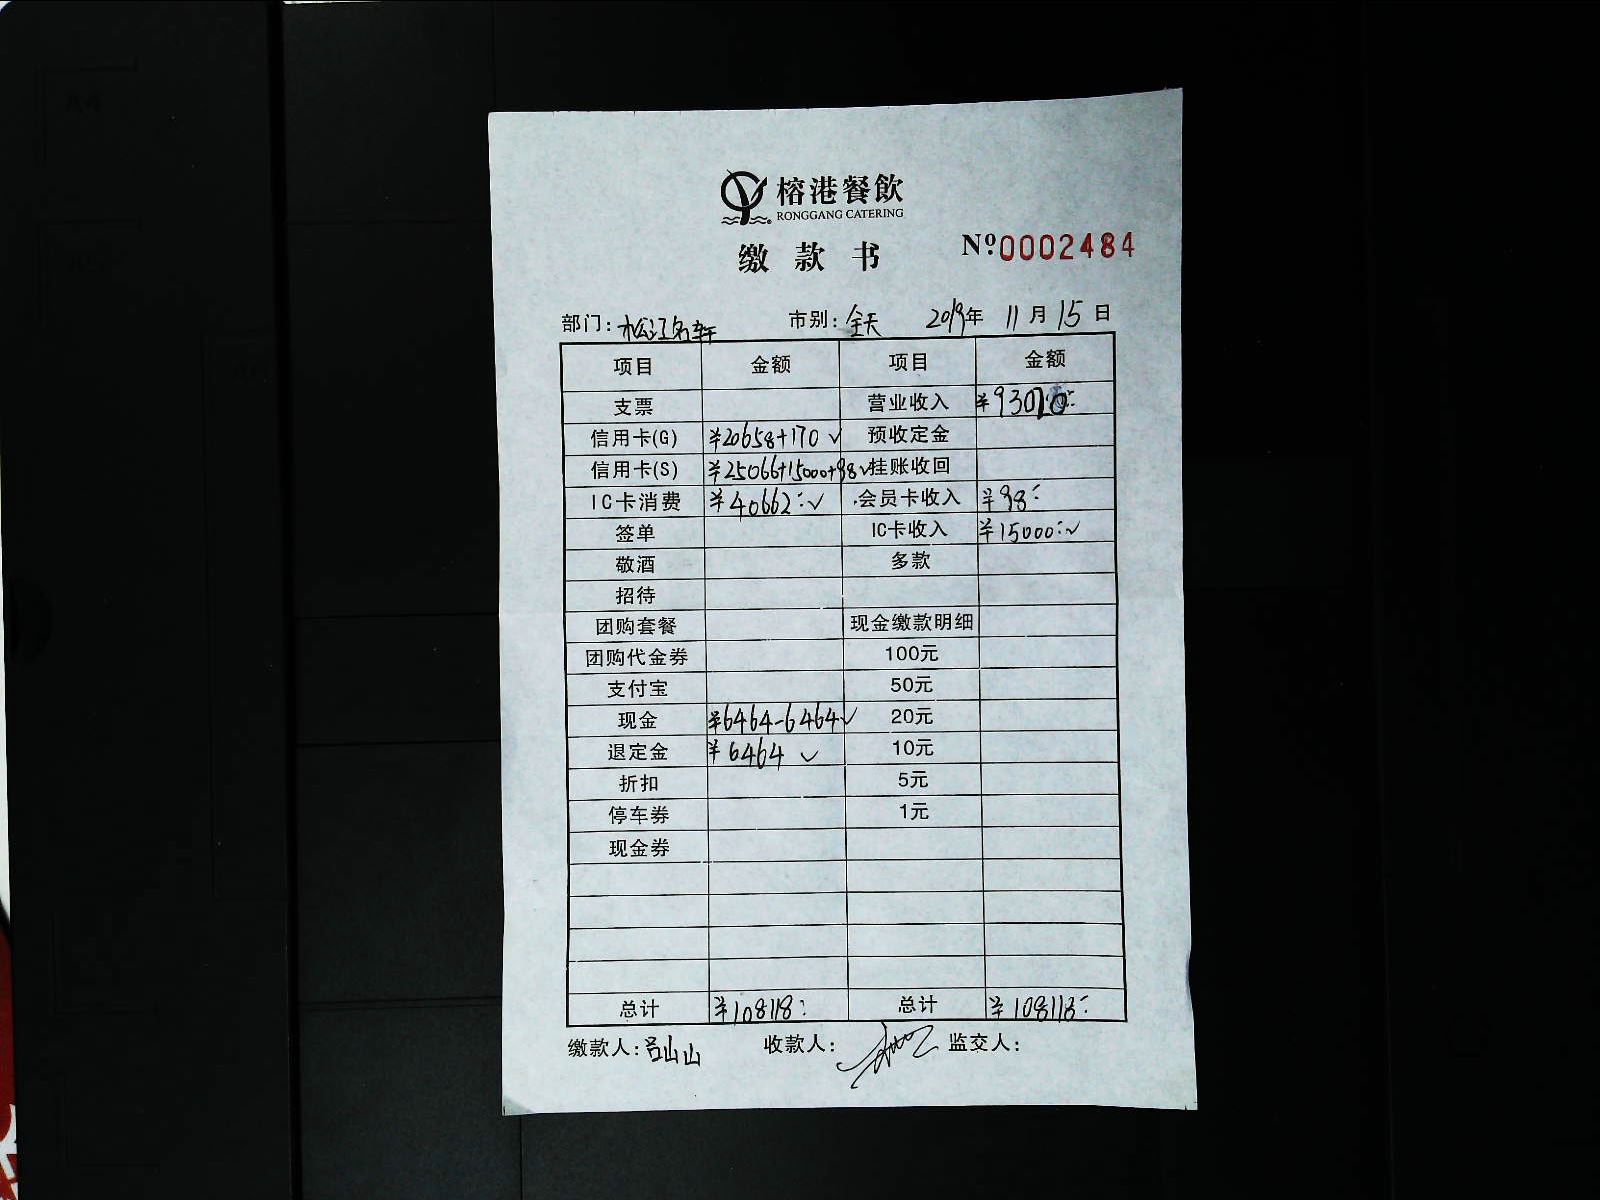 榕港餐飲
RONGGANG CATERING
缴款书 Nº0002484
部门:松江名轩 市别:全天 2019年 11月 15日
项目 金额 项目 金额
支票 营业收入 ¥93020:
信用卡(G) ¥20658+170 √ 预收定金
信用卡(S) ¥25066+15000+98√ 挂账收回
IC卡消费 ¥40662:√ 会员卡收入 ¥98:
签单 IC卡收入 ¥15000:√
敬酒 多款
招待
团购套餐 现金缴款明细
团购代金券 100元
支付宝 50元
现金 ¥6464-6464√ 20元
退定金 ¥6464 √ 10元
折扣 5元
停车券 1元
现金券
总计 ¥108118: 总计 ¥108118:
缴款人:吕山山 收款人: 监交人: